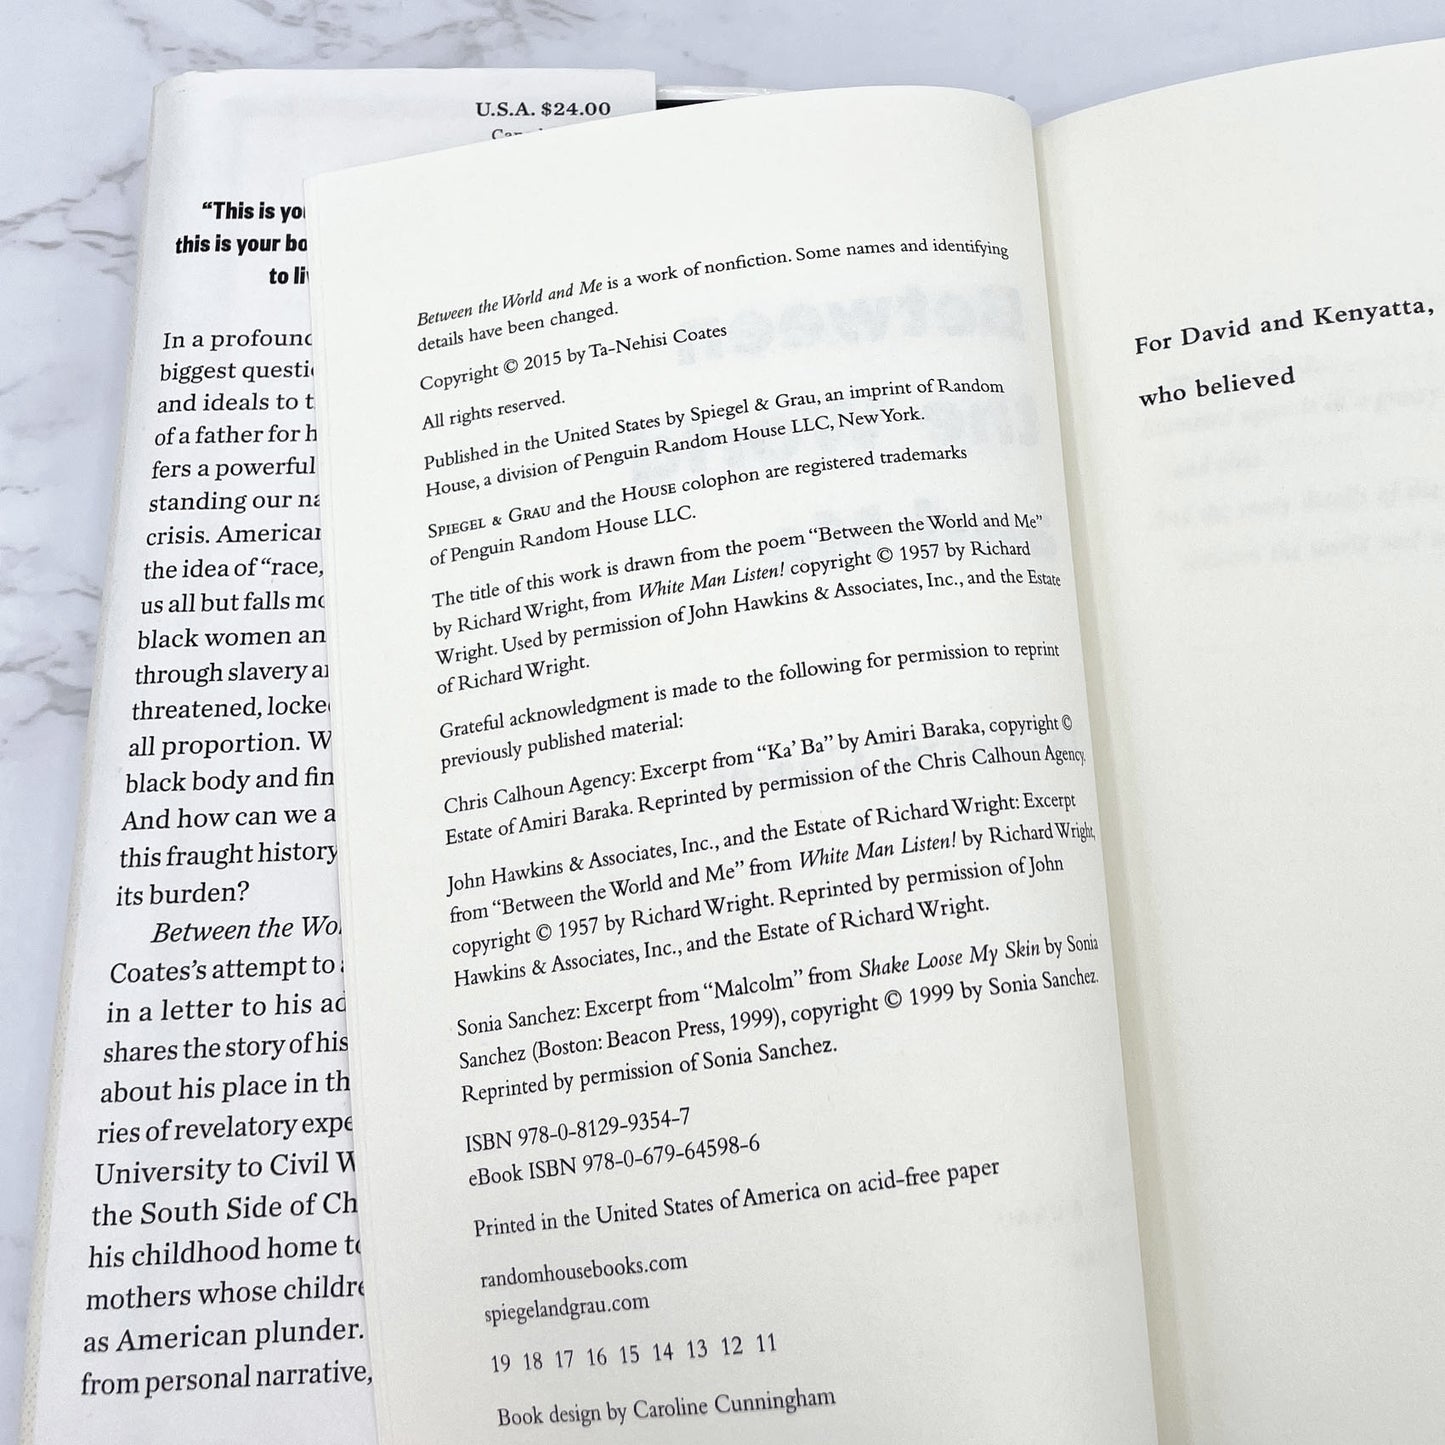 U.S.A. $24.00
“This is
this is your
In a
biggest
and ideals to
of a father for
fers a powerful
standing our
crisis.
the idea of “race,
us all but falls
black women
through slavery
threatened,
all proportion.
black body and
And how can we
this fraught history
its burden?
Between the
Coates’s attempt to
in a letter to his
shares the story of his
about his place in
ries of revelatory
University to Civil
the South Side of
his childhood home
mothers whose
as American plunder.
from personal narrative,
Between the World and Me is a work of nonfiction. Some names and identifying
details have been changed.
Copyright © 2015 by Ta-Nehisi Coates
All rights reserved.
Published in the United States by Spiegel & Grau, an imprint of Random
House, a division of Penguin Random House LLC, New York.
SPIEGEL & GRAU and the HOUSE colophon are registered trademarks
of Penguin Random House LLC.
The title of this work is drawn from the poem “Between the World and Me”
by Richard Wright, from White Man Listen! copyright © 1957 by Richard
Wright. Used by permission of John Hawkins & Associates, Inc., and the Estate
of Richard Wright.
Grateful acknowledgment is made to the following for permission to reprint
previously published material:
Chris Calhoun Agency: Excerpt from “Ka’ Ba” by Amiri Baraka, copyright ©
Estate of Amiri Baraka. Reprinted by permission of the Chris Calhoun Agency.
John Hawkins & Associates, Inc., and the Estate of Richard Wright: Excerpt
from “Between the World and Me” from White Man Listen! by Richard Wright,
copyright © 1957 by Richard Wright. Reprinted by permission of John
Hawkins & Associates, Inc., and the Estate of Richard Wright.
Sonia Sanchez: Excerpt from “Malcolm” from Shake Loose My Skin by Sonia
Sanchez (Boston: Beacon Press, 1999), copyright © 1999 by Sonia Sanchez.
Reprinted by permission of Sonia Sanchez.
ISBN 978-0-8129-9354-7
eBook ISBN 978-0-679-64598-6
Printed in the United States of America on acid-free paper
randomhousebooks.com
spiegelandgrau.com
19 18 17 16 15 14 13 12 11
Book design by Caroline Cunningham
For David and Kenyatta,
who believed